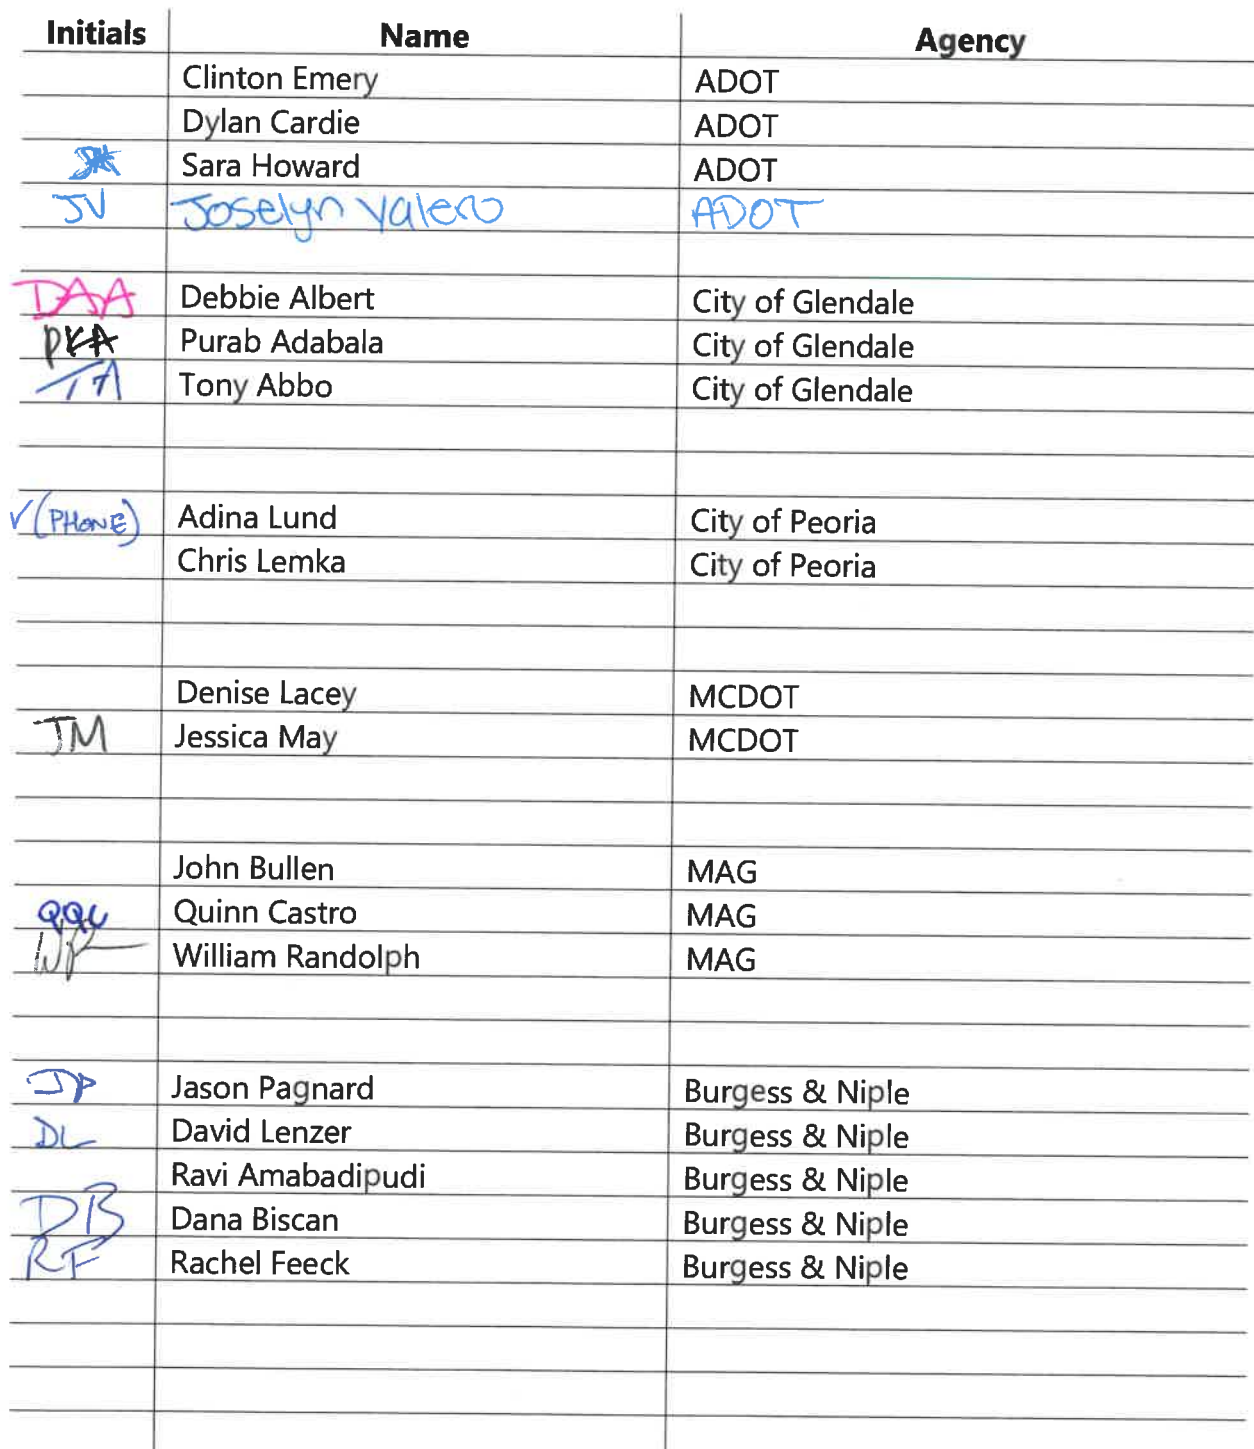 Initials Name Agency
Clinton Emery ADOT
Dylan Cardie ADOT
Sara Howard ADOT
JV Joselyn Valero ADOT
DAA Debbie Albert City of Glendale
PKA Purab Adabala City of Glendale
TA Tony Abbo City of Glendale
✓(PHONE) Adina Lund City of Peoria
Chris Lemka City of Peoria
Denise Lacey MCDOT
JM Jessica May MCDOT
John Bullen MAG
QQC Quinn Castro MAG
WR William Randolph MAG
JP Jason Pagnard Burgess & Niple
DL David Lenzer Burgess & Niple
Ravi Amabadipudi Burgess & Niple
DB Dana Biscan Burgess & Niple
RF Rachel Feeck Burgess & Niple